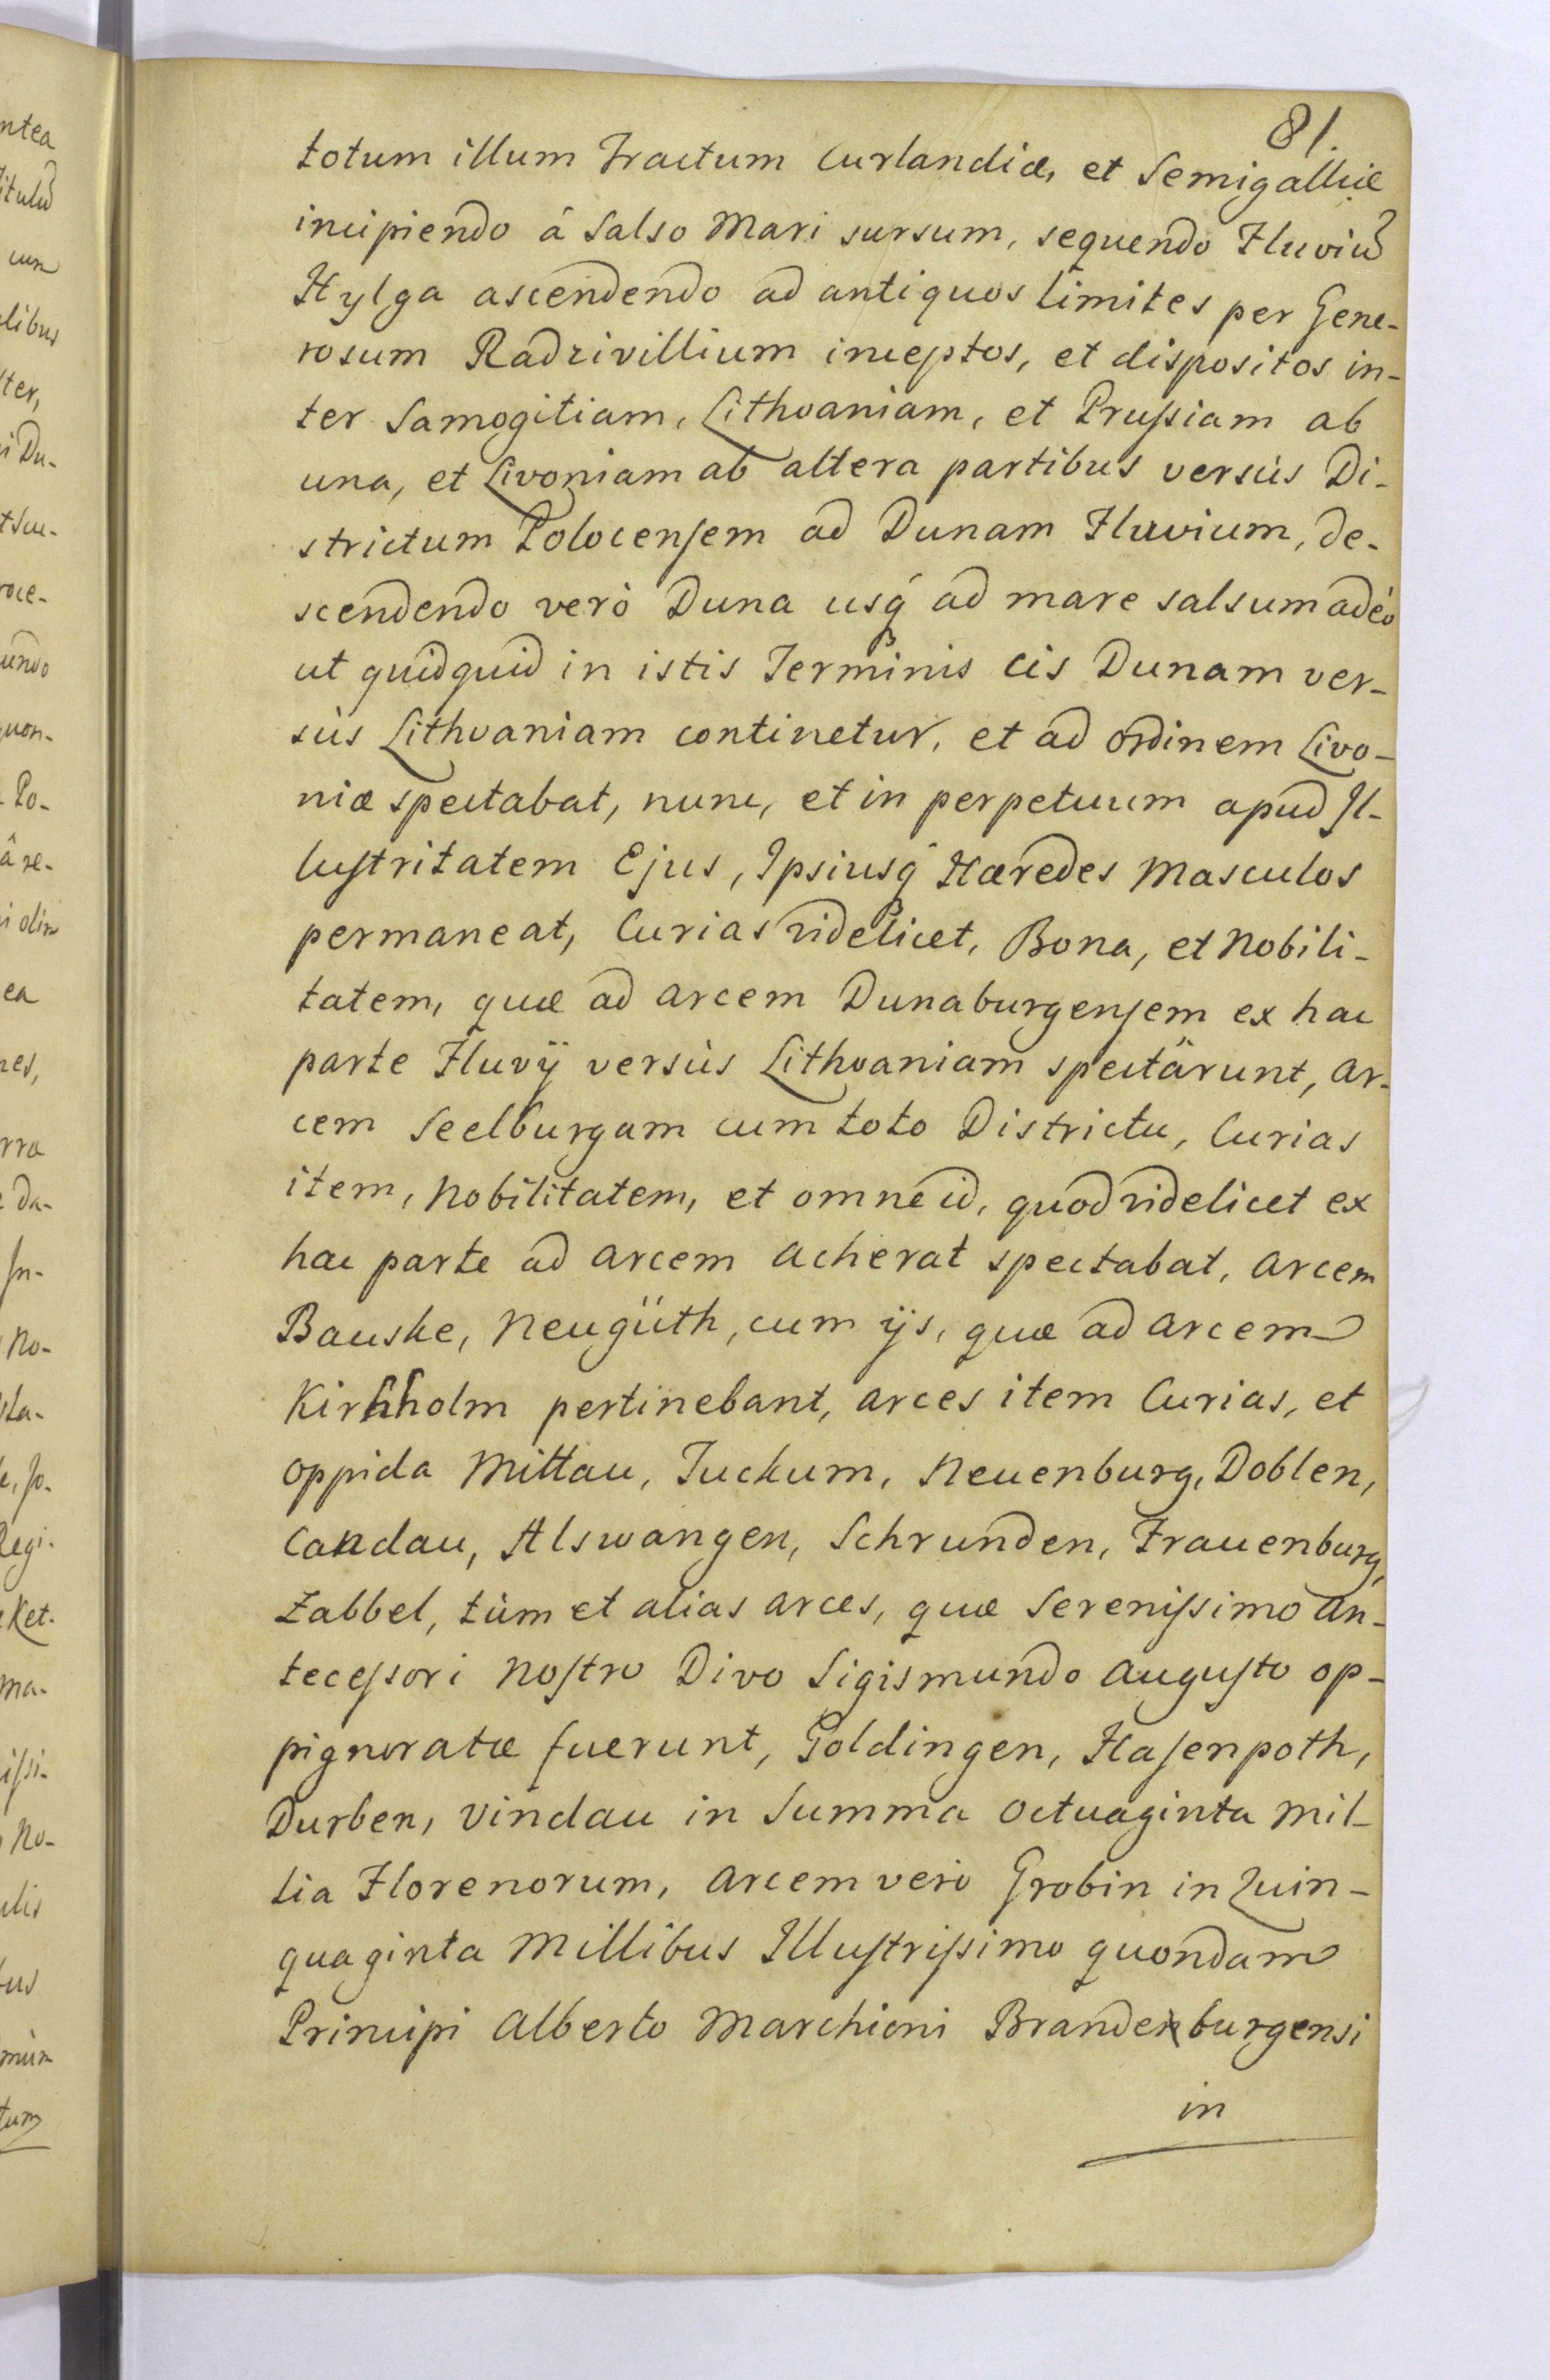 81.
totum illum Tractum Curlandiæ, et Semigalliæ
incipiendo á Salso Mari sursum, sequendo Fluviũ
Hylga ascendendo ad antiquos limites per Gene-
rosum Radzivillium inceptos, et dispositos in-
ter Samogitiam, Lithvaniam, et Prußiam ab
una, et Livoniam ab altera partibus versùs Di-
strictum Polocenſem ad Dunam Fluvium, de-
scendendo verò Duna usq́ ad mare salsum adeò
ut quidquid in istis Terminis cis Dunam ver-
sùs Lithvaniam continetur, et ad ordinem Livo-
niæ spectabat, nunc, et in perpetuum apud Il-
luſtritatem Ejus, Ipsiusq́ Hæredes Masculos
permaneat, Curias videlicet, Bona, et Nobili-
tatem, quæ ad arcem Dunaburgenſem ex hac
parte Fluvÿ versùs Lithvaniam spectârunt, ar-
cem Seelburgam cum toto Districtu, Curias
item, Nobilitatem, et omne id, quod videlicet ex
hac parte ad arcem Acherat spectabat, arcem
Bauske, Neugüth, cum ÿs, quæ ad arcem
Kirhholm pertinebant, arces item Curias, et
oppida Mittau, Tuckum, Neuenburg, Doblen,
Candau, Alswangen, Schrunden, Frauenburg,
Zabbel, tùm et alias arces, quæ Sereniſsimo An-
teceſsori Noſtro Divo Sigismundo Auguſto op-
pignoratæ fuerunt, Goldingen, Haſenpoth,
Durben, Vindau in Summa octuaginta mil-
lia Florenorum, Arcem verò Grobin in Quin-
quaginta Millibus Illuſtriſsimo quondam
Principi Alberto Marchioni Brandenburgensi
in